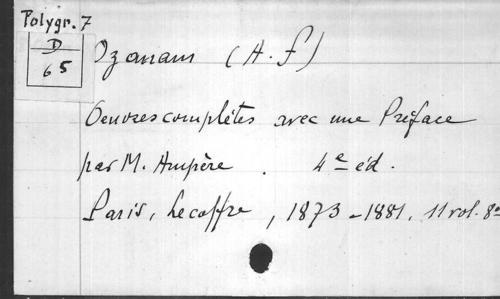 Polygr. 7
D
65
Ozanam (A. f)
Oeuvres complètes avec une Préface
par M. Ampère. 4e éd.
Paris, Lecoffre, 1873-1881. 11 vol. 8o